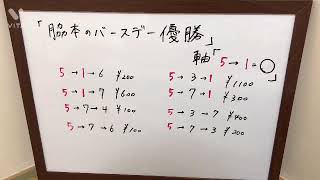 「脇本のバースデー優勝」
軸「5→1=○」
5→1→6 ¥200
5→1→7 ¥600
5→7→4 ¥100
5→7→6 ¥100
5→3→1 ¥1100
5→7→1 ¥300
5→3→7 ¥400
5→7→3 ¥200